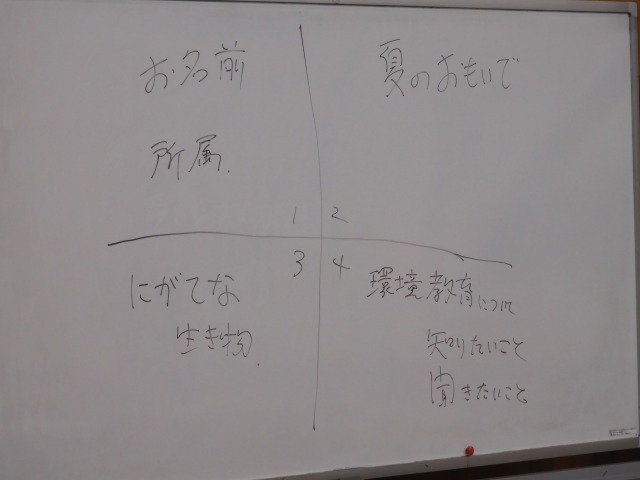 お名前
所属.
1
夏のおもいで
2
3
にがてな
生き物.
4
環境教育について
知りたいこと
聞きたいこと